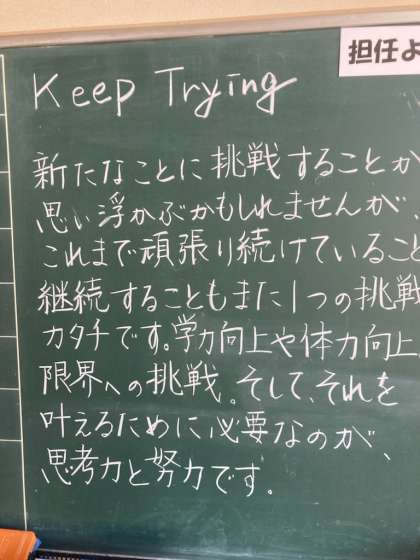 担任よ
Keep Trying
新たなことに挑戦することか
思い浮かぶかもしれませんが
これまで頑張り続けていること
継続することもまた1つの挑戦
カタチです。学力向上や体力向上
限界への挑戦。そして、それを
叶えるために必要なのが、
思考力と努力です。